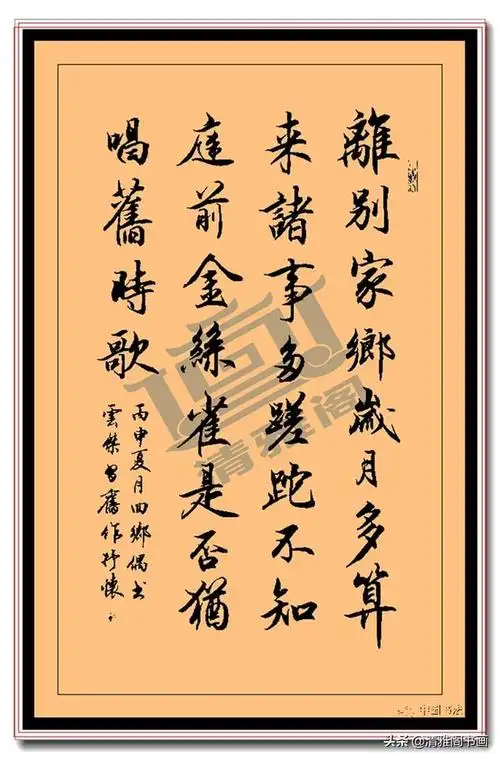 離別家鄉歲月多算
来諸事多蹉跎不知
庭前金絲雀是否猶
唱舊時歌
丙申夏月回鄉偶书
雲傑舊作抒懷
清雅阁
中国书法
头条 @清雅阁书画